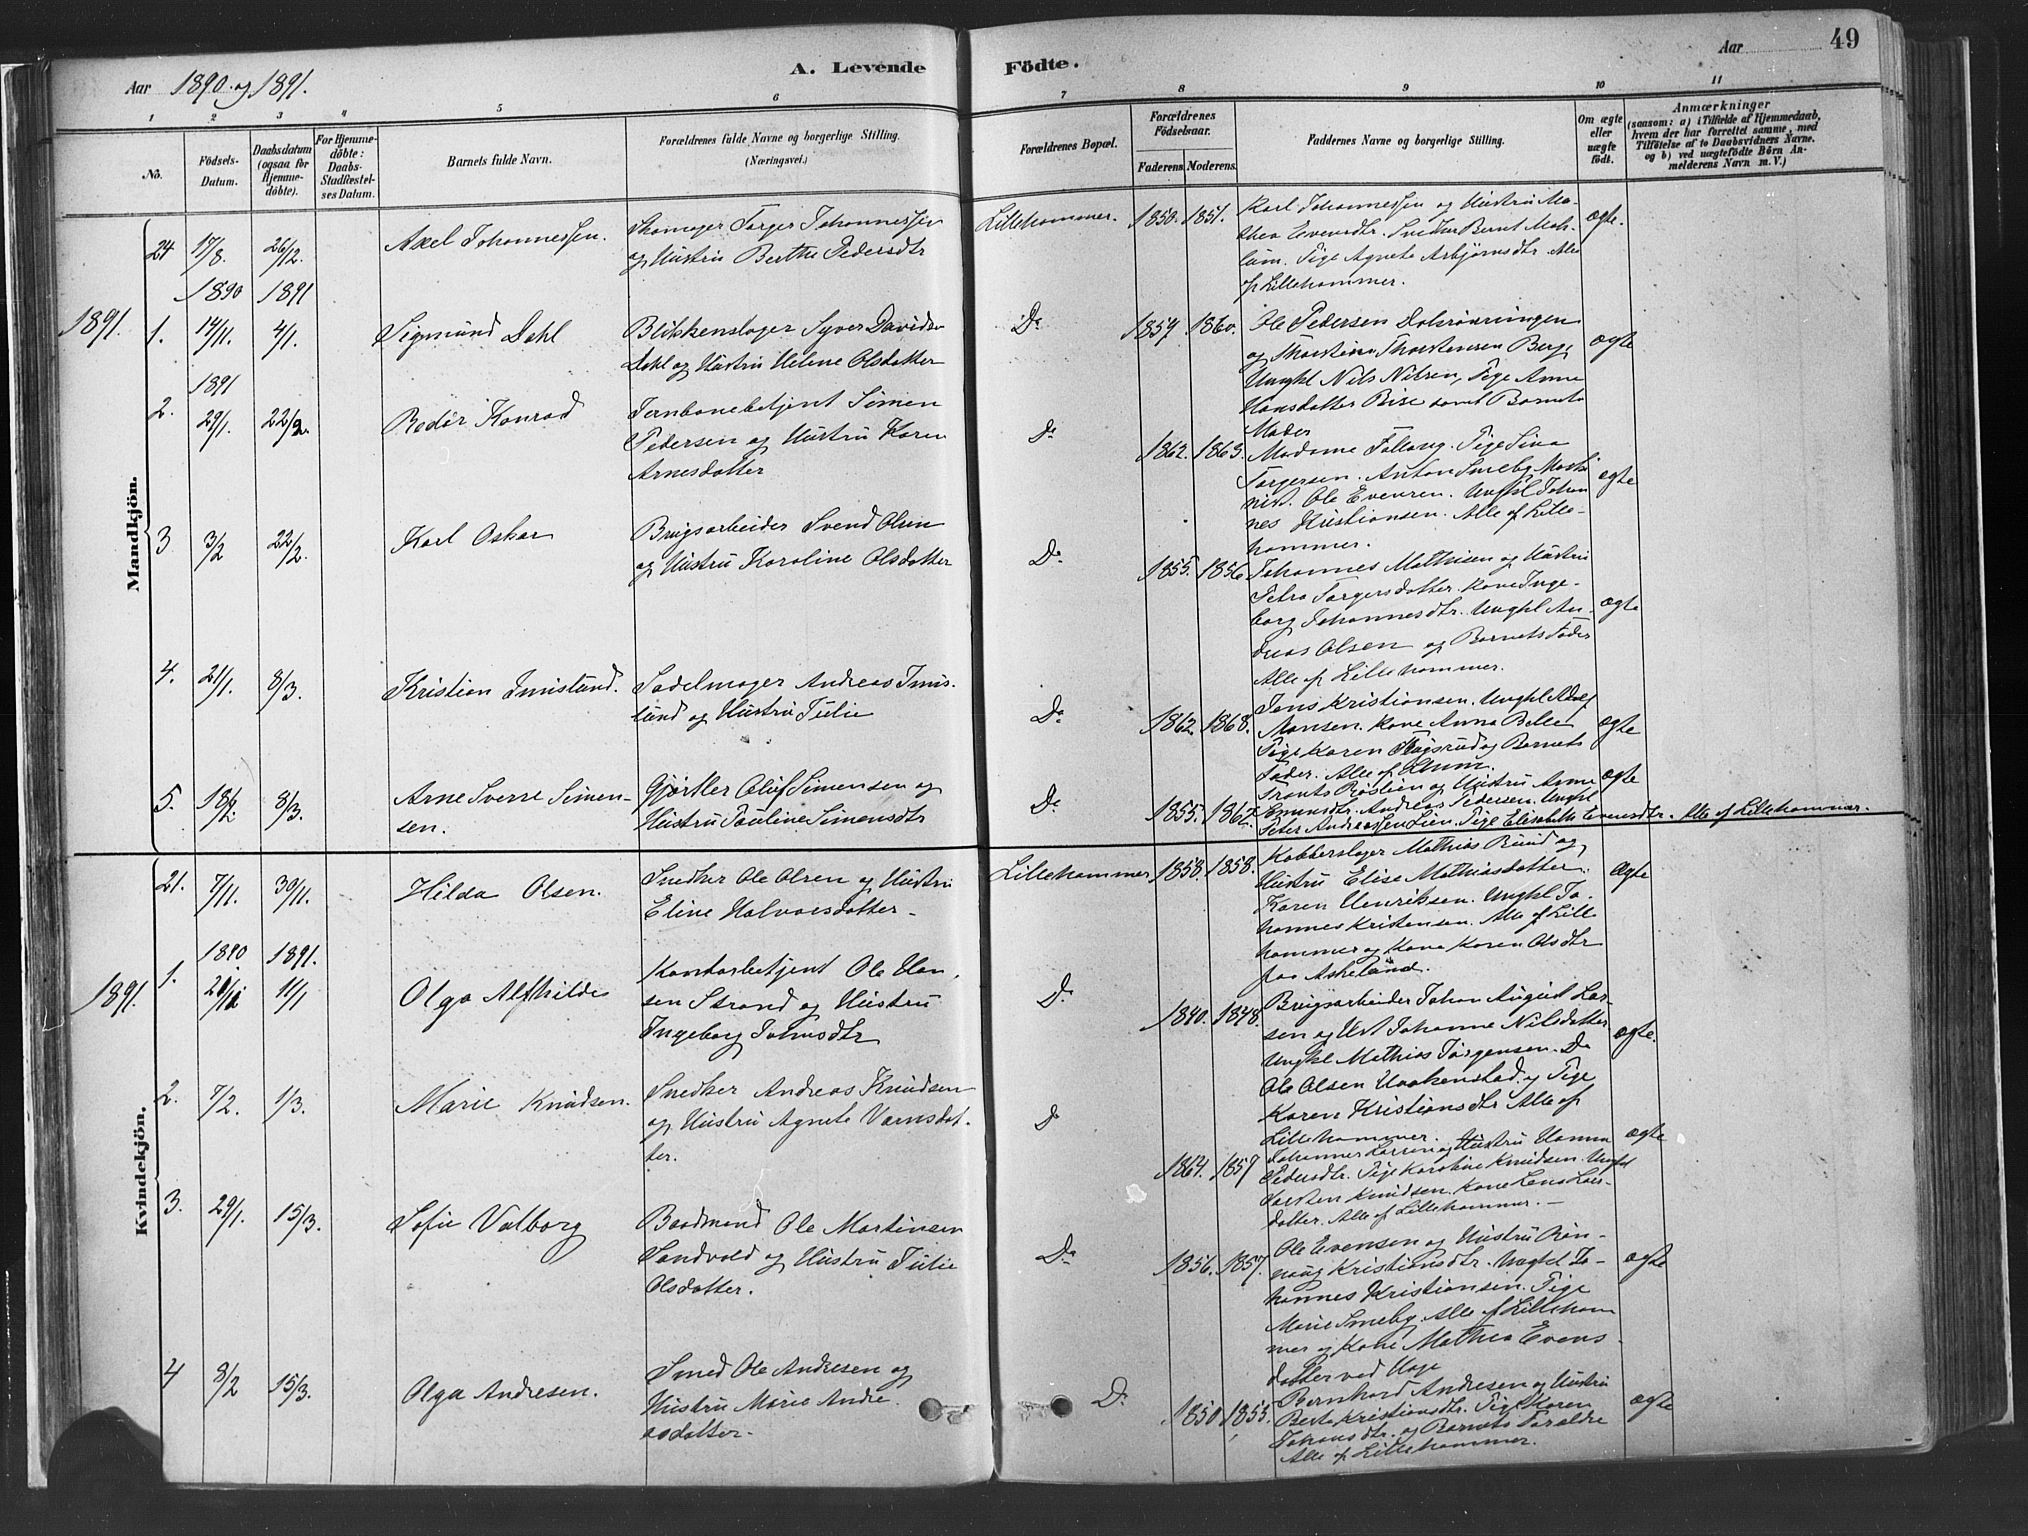 Aar 1890 og 1891.
A. Levende
Födte.
Aar
49
1 2 3 4 5 6 7 8 9 10 11
No.
Födsels-
Datum.
Daabsdatum
(ogsaa for
Hjemme-
döbte).
For Hjemme-
döbte:
Daabs-
Stadfæstel-
ses Datum.
Barnets fulde Navn.
Forældrenes fulde Navne og borgerlige Stilling.
(Næringsvei.)
Forældrenes Bopæl.
Forældrenes
Födselsaar.
Faderens. Moderens.
Faddernes Navne og borgerlige Stilling.
Om ægte
eller
uægte
födt.
Anmærkninger
(saasom: a) i Tilfælde af Hjemmedaab,
hvem der har forrettet samme, med
Tilföielse af to Daabsvidners Navne.
og b) ved uægtefödte Börn An-
melderens Navn m. V.)
Mandkjön.
24 17/8. 26/12. Axel Johannessen.
Skomager Torger Johannessen
og Hustru Berthe Pedersdtr
Lillehammer. 1850. 1851.
Karl Johannessen og Hustru Ma-
thea Evensdtr. Snedker Bernt Moh-
lum. Pige Agnete Asbjørnsdtr Alle
af Lillehammer.
ægte.
1890 1891
1891.
1. 14/11. 4/1. Sigmund Dahl
Blikkenslager Syver Davids
Dahl og Hustru Helene Olsdatter
Do 1859. 1860.
Ole Pedersen
og Thorstein Thorstensen Berge
Ungkl Nils Nilsen, Pige Anne
Hansdatter Bise samt Barnets
Moder
ægte
1891
2. 29/1. 22/2. Rodør Konrad
Jernbanebetjent Simen
Pedersen og Hustru Karen
Arnesdatter
Do 1862. 1863.
Madame Fallang. Pige Lina
Torgersen. Anton Smeby Maski
nist. Ole Evensen. Ungkl Johan
nes Kristiansen. Alle af Lille-
hammer.
ægte
3 3/2 22/2. Karl Oskar
Brugsarbeider Svend Olsen
og Hustru Karoline Olsdatter
Do 1855. 1856
Johannes Mathisen og Hustru
Petra Torgersdatter. Kone Inge-
borg Johannesdtr. Ungkl An-
dreas Olsen og Barnets Fader
Alle af Lillehammer.
ægte
4. 21/1. 8/3. Kristian Imislund.
Sadelmager Andreas Imis-
lund og Hustru Julie
Do 1862. 1868.
Jens Kristiansen. Ungkl Adolf
Monsen. Kone Anna Belle
Pige Karen og Barnets
Fader. Alle af
ægte
5. 18/2. 8/3. Arne Sverre Simen-
sen.
Gjørtler Oluf Simensen og
Hustru Pauline Simensdtr
Do 1855. 1862.
Frants Røslien og Hustru Anne
Emundsdtr. Andreas Pedersen. Ungkl
Peter Andreassen Lien. Pige Elisabeth Evensdtr. Alle af Lillehammer.
ægte
Kvindekjön.
21. 7/11. 30/11. Hilda Olsen.
Snedker Ole Olsen og Hustru
Eline Halvorsdatter.
Lillehammer 1858. 1858.
Kobberslager Mathias Rund og
Hustru Elise Mathiasdatter.
Karen Henriksen. Ungkl Jo-
hannes Kristensen. Alle af Lille
hammer og Kone Karen Olsdtr
fra Askelund.
ægte
1890 1891.
1891.
1. 11/1 Olga Alfhilde
Kontorbetjent Ole Han-
sen Strand og Hustru
Ingeborg Johnsdtr
Do 1840. 1848.
Brugsarbeider Johan August Lar-
sen og Hust Johanne Nilsdatter
Ungkl Mathias Jørgensen. Do
Ole Olsen Haakenstad. og Pige
Karen Kristiansdtr Alle af
Lillehammer.
ægte.
2. 7/2. 1/3. Marie Knudsen.
Snedker Andreas Knudsen
og Hustru Agnete
ter.
Do 1864. 1857
Johannes Larsen og Hustru Hanna
Pedersdtr. Pige Karoline Knudsen. Ungkl
Torsten Knudsen. Kone Lena Lars-
datter. Alle af Lillehammer.
ægte
3. 29/1. 15/3. Sofie Valborg
Baadmand Ole Martinsen
Sandvold og Hustru Julie
Olsdatter.
Do 1856. 1857.
Ole Evensen og Hustru Røn-
naug Kristiansdtr. Ungkl Jo-
hannes Kristiansen. Pige
Marie Smeby Alle af Lilleham
mer og Kone Mathea Evens
datter ved Hage
ægte
4 8/2 15/3. Olga Andresen.
Smed Ole Andresen og
Hustru Marie Andre
asdatter.
Do 1850 1855.
Bernhard Andresen og Hustru
Berte Kristiansdtr. Pige Karen
Johansdtr. og Barnets Forældre
Alle af Lillehammer.
ægte